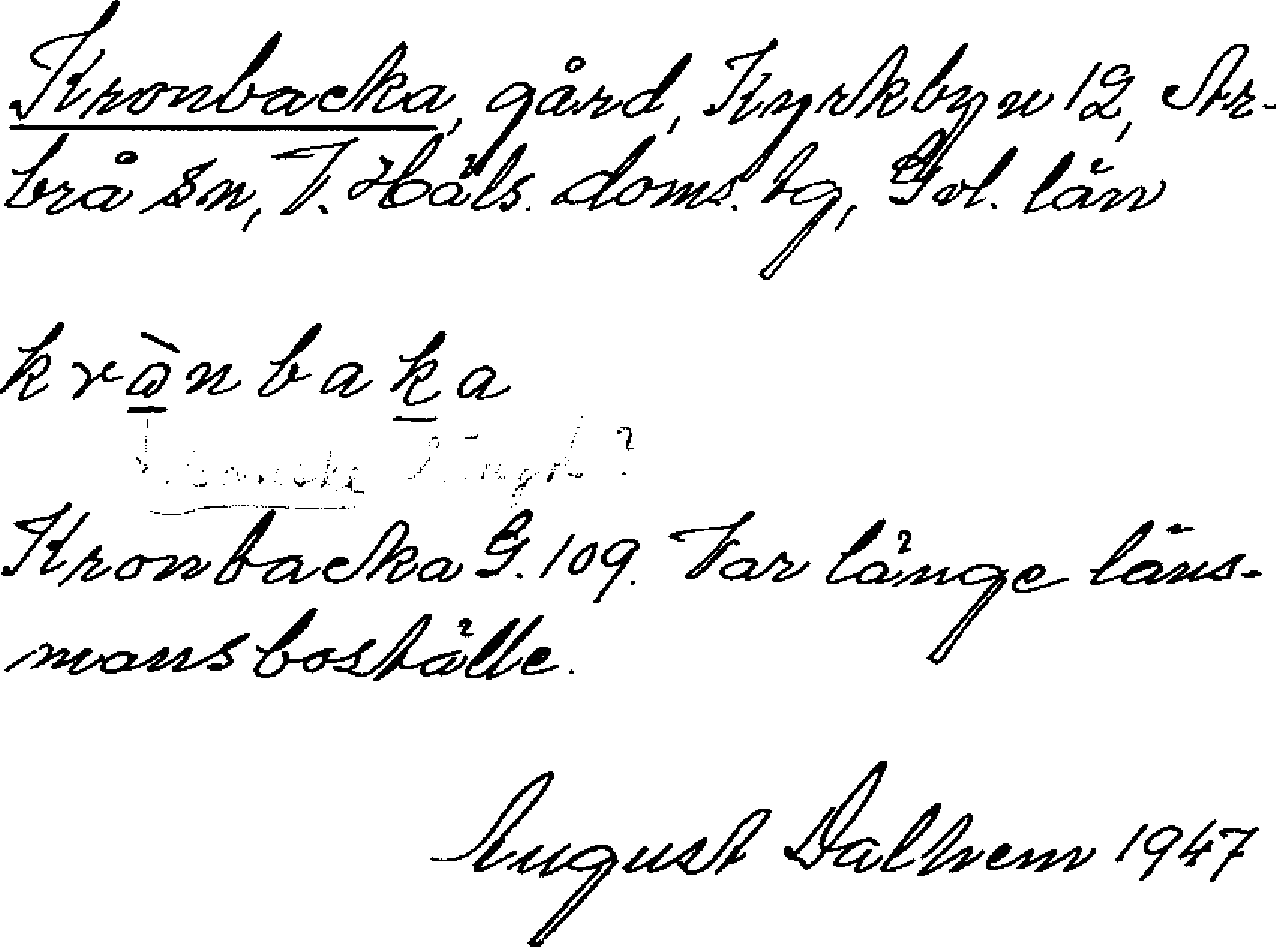 Kronbacka, gård, Kyrkbyn 12, Ar-
brå sn, V. Häls. doms. tg, Gvl. län
krànbaka
kanske längd?
Kronbacka G. 109. Var länge läns-
mansboställe.
August Dalhem 1947